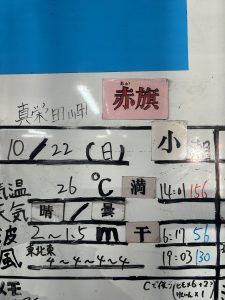 真栄田岬
あかはた
赤旗
小潮
10/22(日)
気温 26 ℃ 満 14:01 156
天気 晴/曇
波 2~1.5 m 干 6:17 56
風 東北東 4~4~4~4 19:03 30
メモ